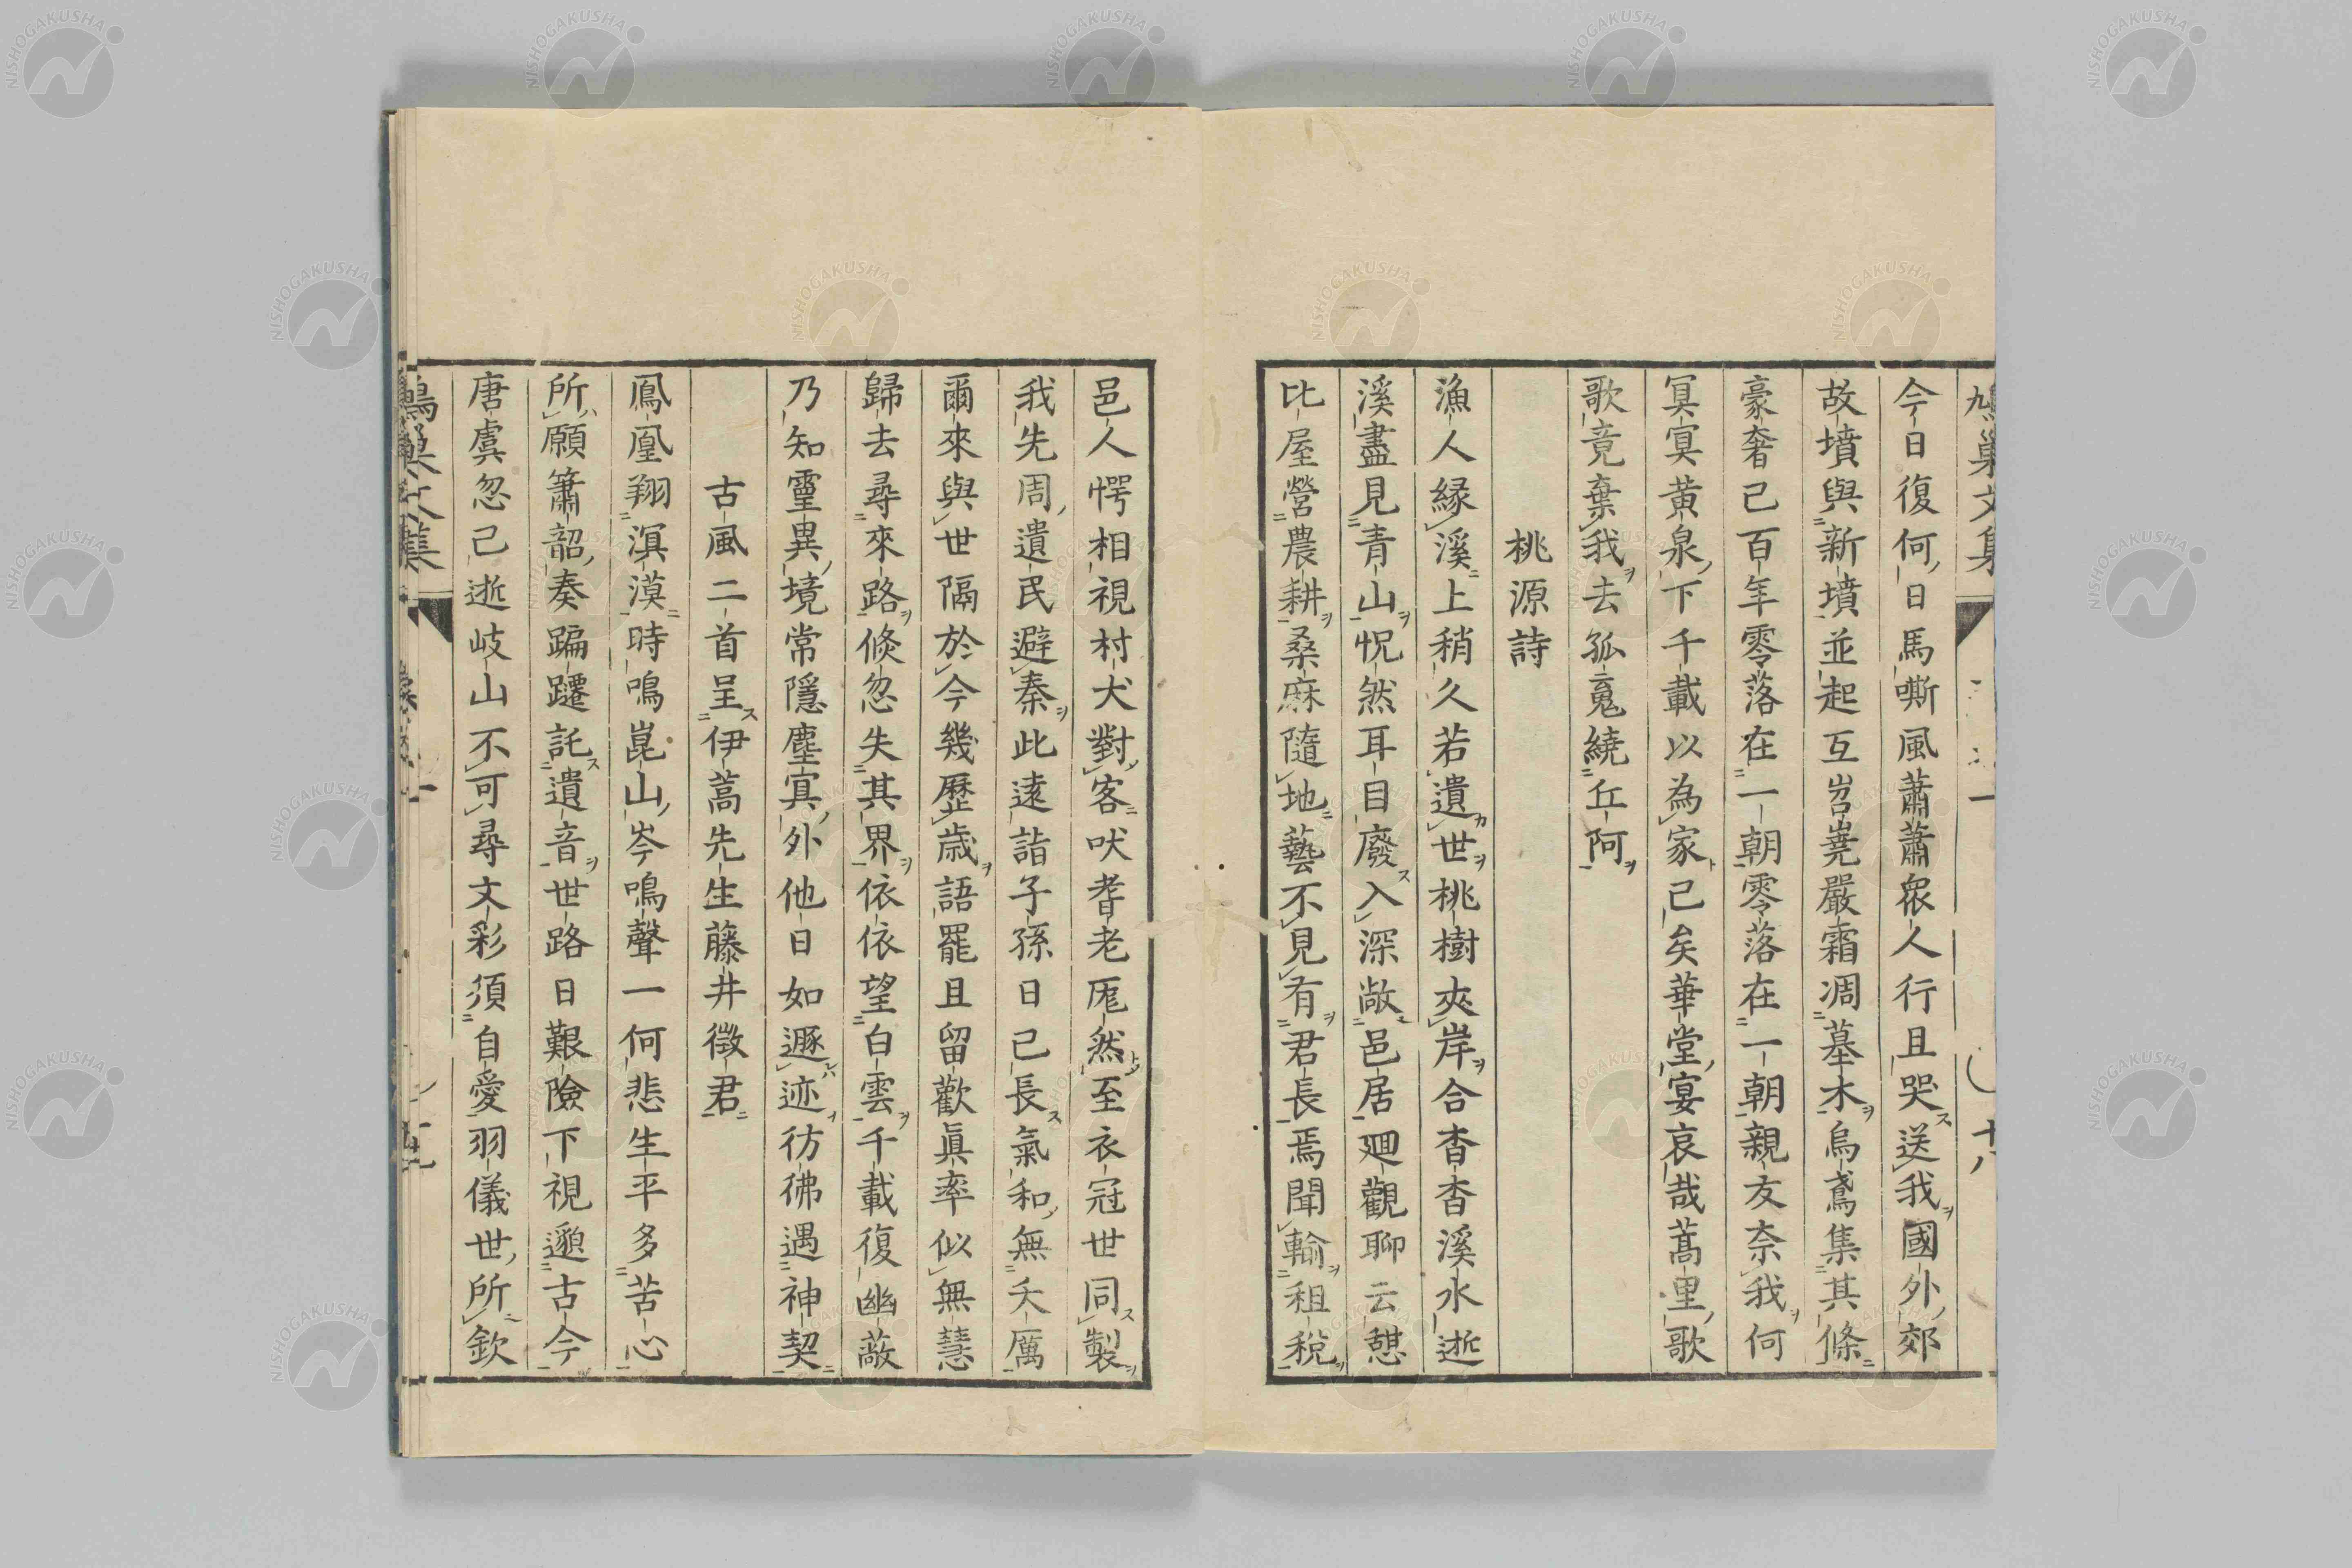 今日復何日馬嘶風蕭蕭衆人行且哭送我國外郊
故墳與新墳並起互岧嶤嚴霜凋墓木烏鳶集其條
豪奢已百年零落在一朝零落在一朝親友奈我何
冥冥黄泉下千載以為家已矣華堂宴哀哉蒿里歌
歌竟棄我去孤鬼繞丘阿
桃源詩
漁人縁溪上稍久若遺世桃樹夾岸合杳杳溪水逝
溪盡見青山怳然耳目廢入深敞邑居廻觀聊云憩
比屋營農耕桑麻隨地藝不見有君長焉聞輸租税
邑人愕相視村犬對客吠耆老厖然至衣冠世同製
我先周遺民避秦此遠詣子孫日已長氣和無夭厲
爾來與世隔於今幾歴歳語罷且留歡眞率似無慧
歸去尋來路倏忽失其界依依望白雲千載復幽蔽
乃知靈異境常隱塵寞外他日如遯迹彷彿遇神契
古風二首呈伊蒿先生藤井徴君
鳳凰翔溟漠時鳴崑山岑鳴聲一何悲生平多苦心
所願簫韶奏蹁躚託遺音世路日艱險下視邈古今
唐虞忽已逝岐山不可尋文彩須自愛羽儀世所欽